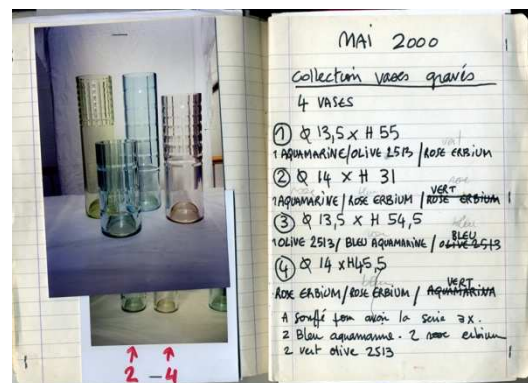 MAI 2000
Collection vases gravés
4 VASES
① Ø 13,5 x H 55
1 AQUAMARINE/OLIVE 2513/ROSE ERBIUM
② Ø 14 x H 31
1 AQUAMARINE/ROSE ERBIUM/ROSE ERBIUM
VERT
③ Ø 13,5 x H 54,5
1 OLIVE 2513/BLEU AQUAMARINE/OLIVE 2513
BLEU
④ Ø 14 x H 45,5
ROSE ERBIUM/ROSE ERBIUM/AQUAMARINA
VERT
A soufflé pour avoir la serie 3x.
2 Bleu aquamarine. 2 rose erbium
2 vert olive 2513
2 - 4